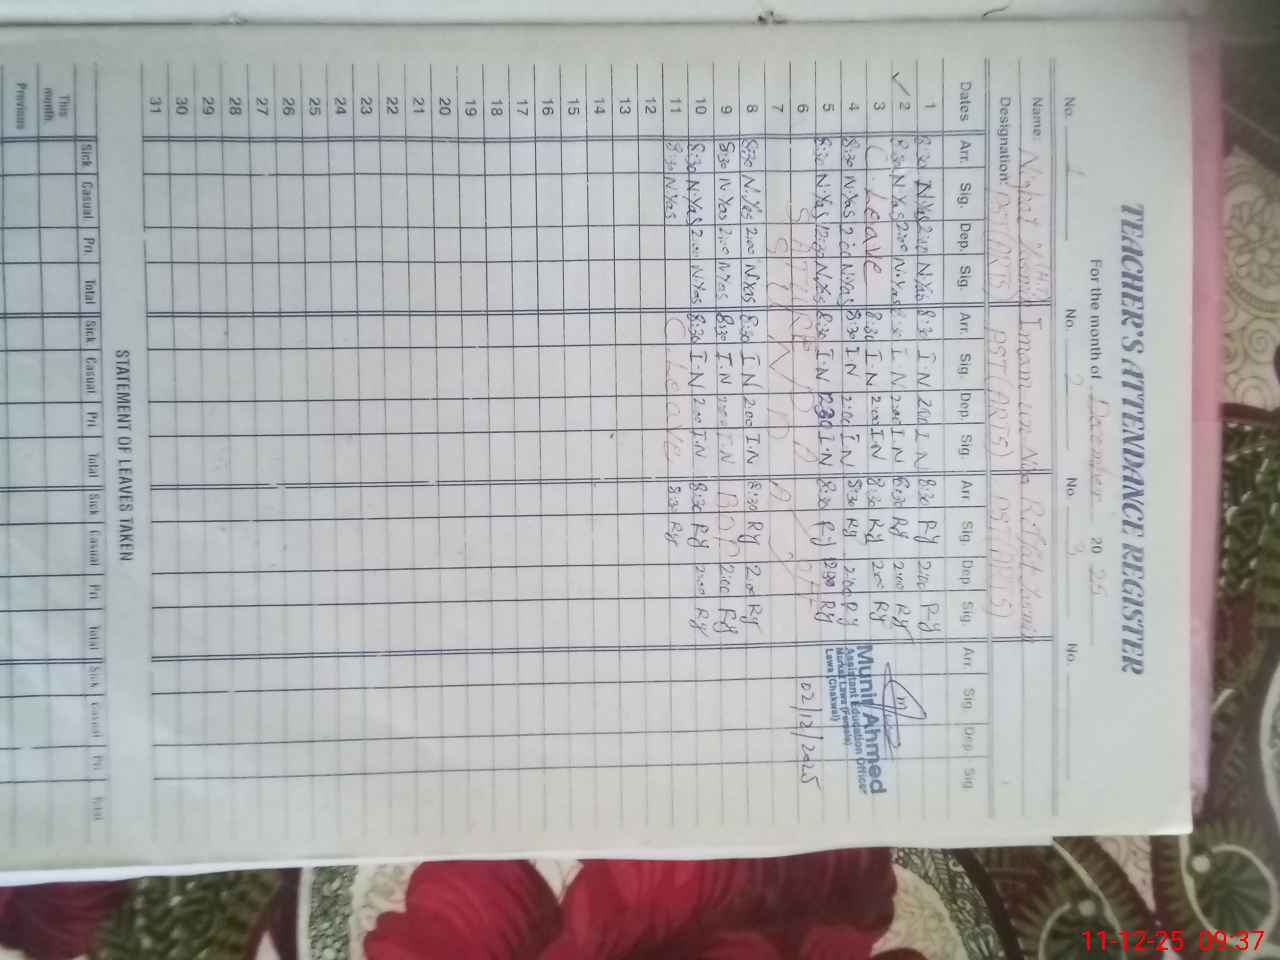 TEACHER'S ATTENDANCE REGISTER
For the month of December 20 25
No. 1 No. 2 No. 3 No.
Name: Imam un Nisa
Designation: PST (ARTS) PST (ARTS) PST (ARTS)
Dates Arr. Sig. Dep. Sig. Arr. Sig. Dep. Sig. Arr Sig. Dep Sig. Arr. Sig. Dep. Sig.
1 8:30 N.Yas 2:00 N.Yas 8:30 I.N 2:00 I.N 8:30 Ry 2:00 Ry
✓ 2 8:30 N.Yas 2:00 N.Yas 8:30 I.N 2:00 I.N 8:30 Ry 2:00 Ry
3 C. Leave 8:30 I.N 2:00 I.N 8:30 Ry 2:00 Ry
4 8:30 N.Yas 2:00 N.Yas 8:30 I.N 2:00 I.N 8:30 Ry 2:00 Ry
5 8:30 N.Yas 12:00 N.Yas 8:30 I.N I.N 8:30 Ry Ry
6
7 SUNDAY
8 8:30 N.Yas 2:00 N.Yas 8:30 I.N 2:00 I.N 8:30 Ry 2:00 Ry
9 8:30 N.Yas 2:00 N.Yas 8:30 I.N 2:00 I.N 2:00 Ry
10 8:30 N.Yas 2:00 N.Yas 8:30 I.N 2:00 I.N 8:30 Ry 2:00 Ry
11 8:30 N.Yas C Leave 8:30 Ry
12
13
14
15
16
17
18
19
20
21
22
23
24
25
26
27
28
29
30
31
Munir Ahmed
Assistant Education Officer
Markaz Lawa (Female)
Lawa (Chakwal)
02/12/2025
STATEMENT OF LEAVES TAKEN
Sick Casual Pri. Total Sick Casual Pri Total Sick Casual Pri Total Sick Casual Pri Total
This month.
Previous
11-12-25 09:37